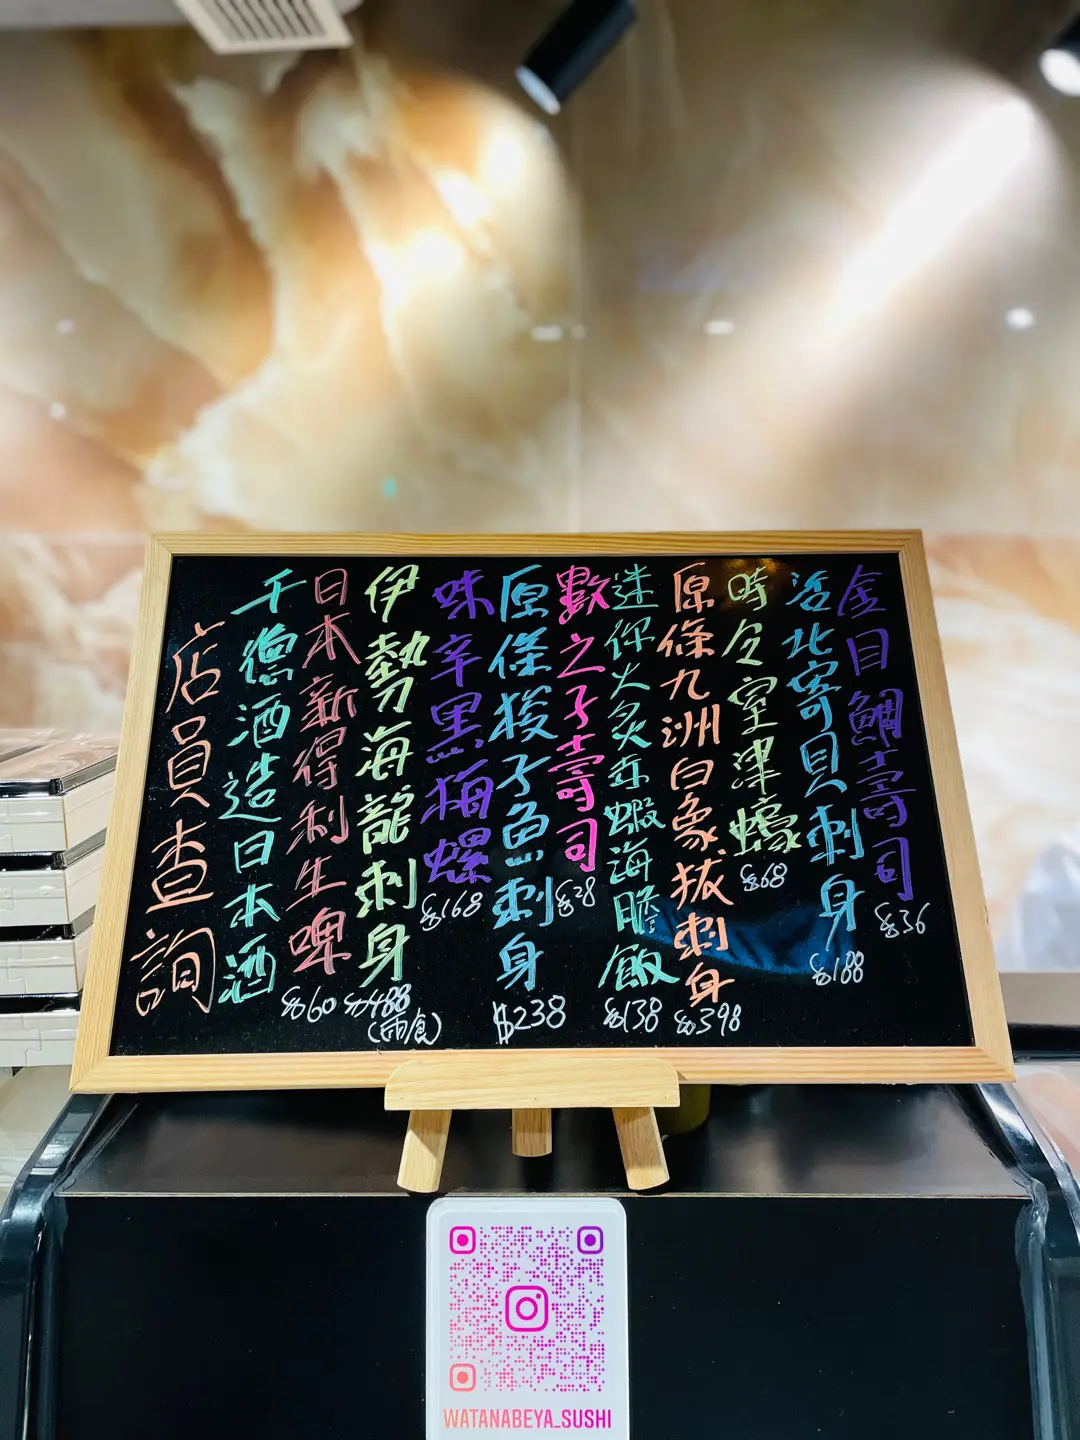 金目鯛壽司
$36
活北寄貝刺身
$188
時令室津蠔
$68
原條九洲白象拔刺身
$398
迷你火炙赤蝦海膽飯
$138
數之子壽司
$28
原條狻子魚刺身
$238
味辛黑梅螺
$168
伊勢海龍刺身
$488
(兩食)
日本新得利生啤
$60
千德酒造日本酒
店員查詢
WATANABEYA_SUSHI